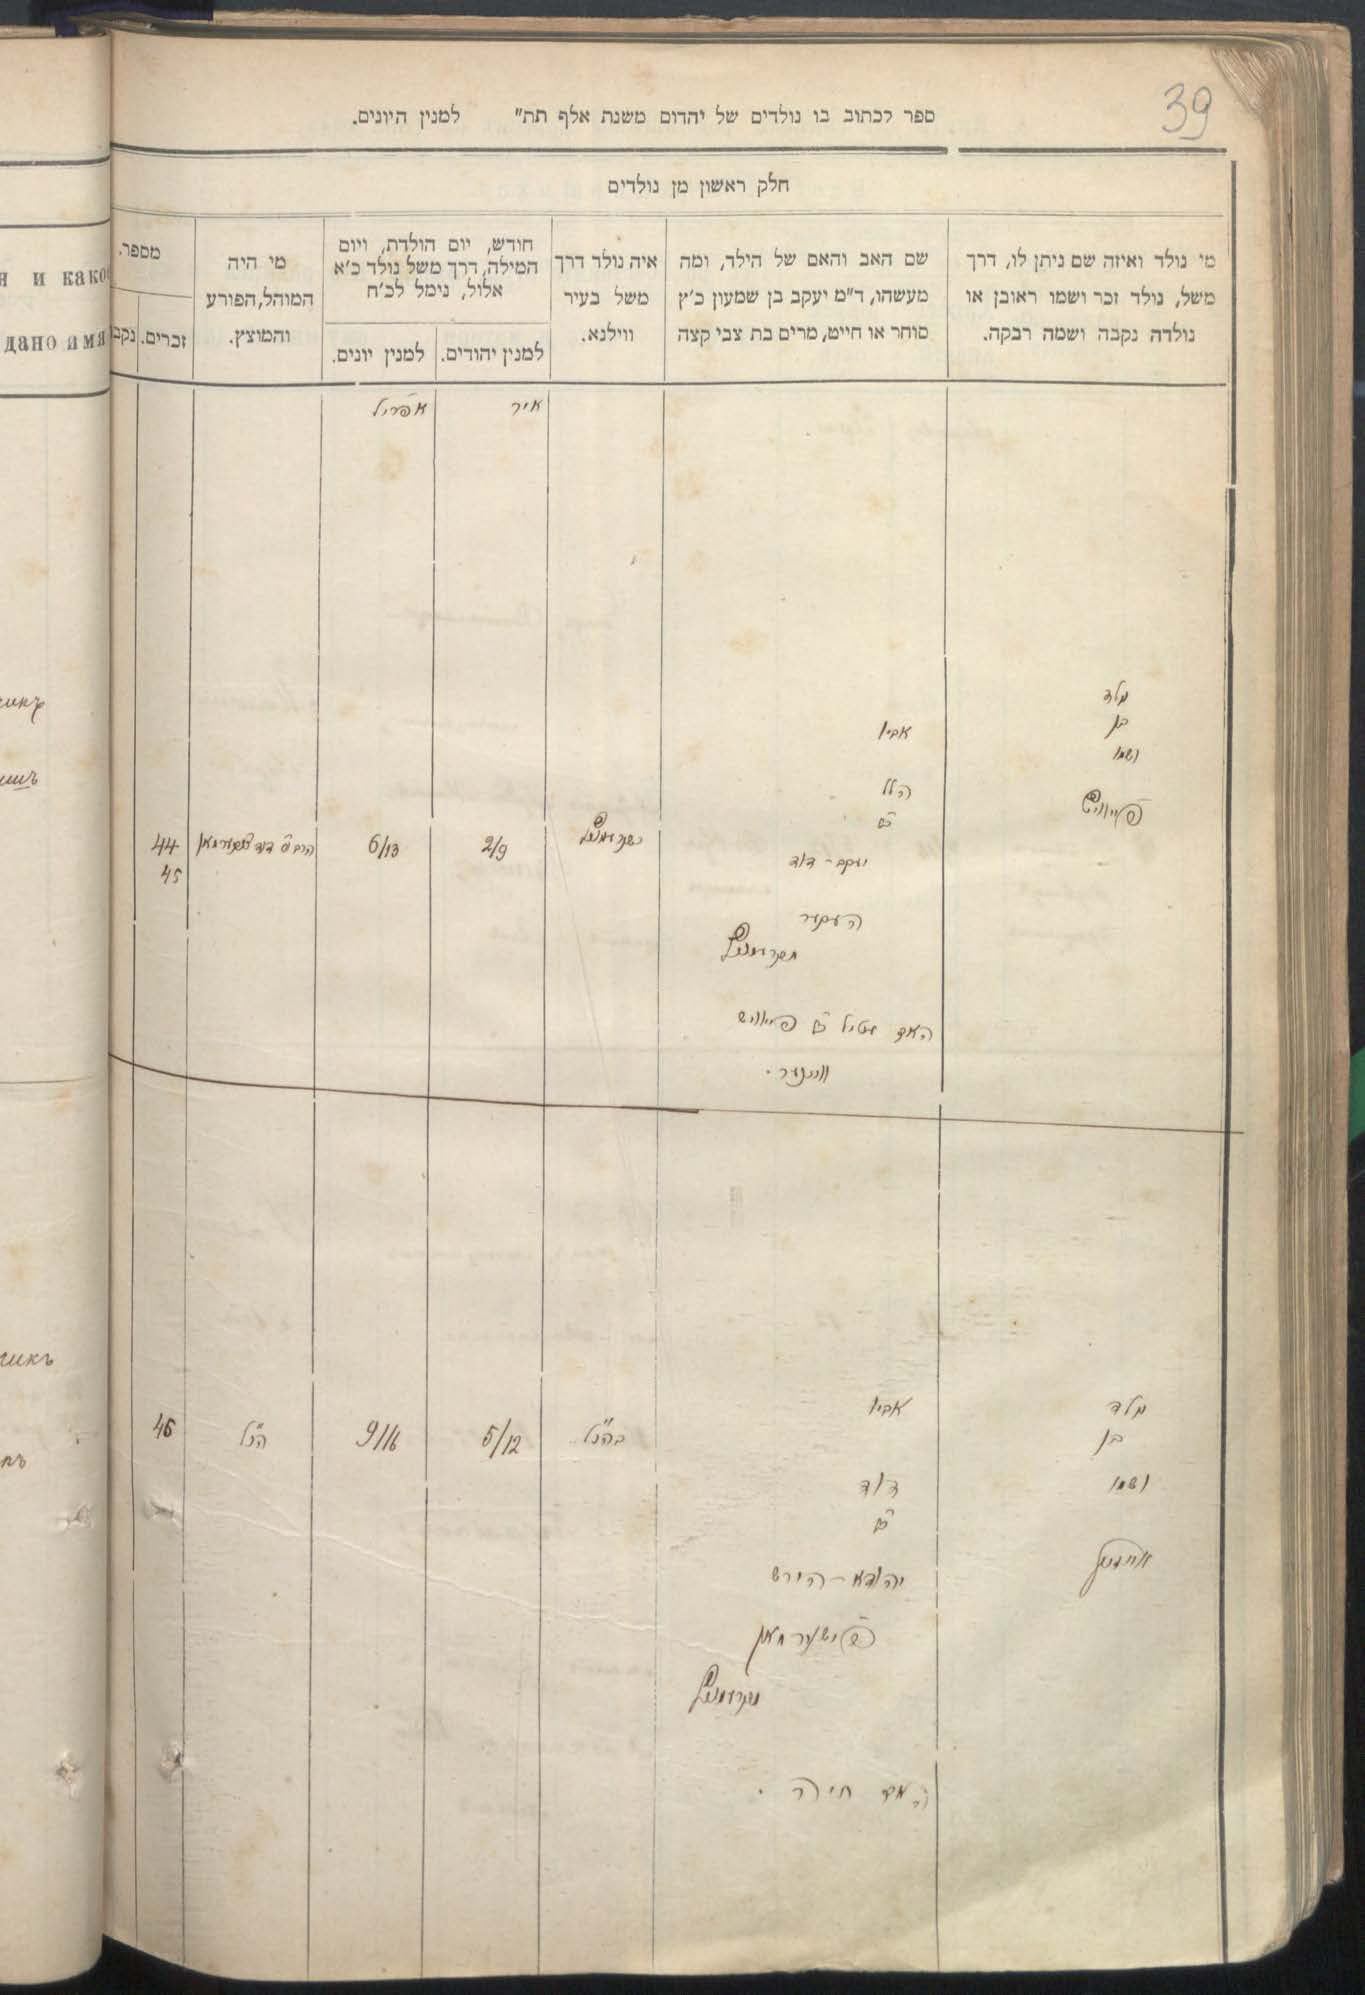 39
ספר לכתוב בו נולדים של יהדום משנת אלף תת" למנין היונים.
חלק ראשון מן נולדים
מי נולד ואיזה שם ניתן לו, דרך
משל, נולד זכר ושמו ראובן או
נולדה נקבה ושמה רבקה.
שם האב והאם של הילד, ומה
מעשהו, ד"מ יעקב בן שמעון כ'ץ
סוחר או חייט, מרים בת צבי קצה
איה נולד דרך
משל בעיר
ווילנא.
חודש, יום הולדת, ויום
המילה, דרך משל נולד כ'א
אלול, נימל לכ'ח
למנין יהודים.
למנין יונים.
מי היה
המוהל, הפורע
והמוצץ.
מספר.
זכרים.
נקב
и како
дано имя
אייר
אפריל
נולד
בן
ושמו
פייוויש
אביו
הלל
ב"ר
יעקב - דוד
האם
ב"ר פייוויש
2/9
6/13
44
45
נולד
בן
ושמו
אביו
דוד
ב"ר
יהודא - הירש
פישערמאן
האם חיה .
בהנ"ל
5/12
9/16
הנ"ל
46